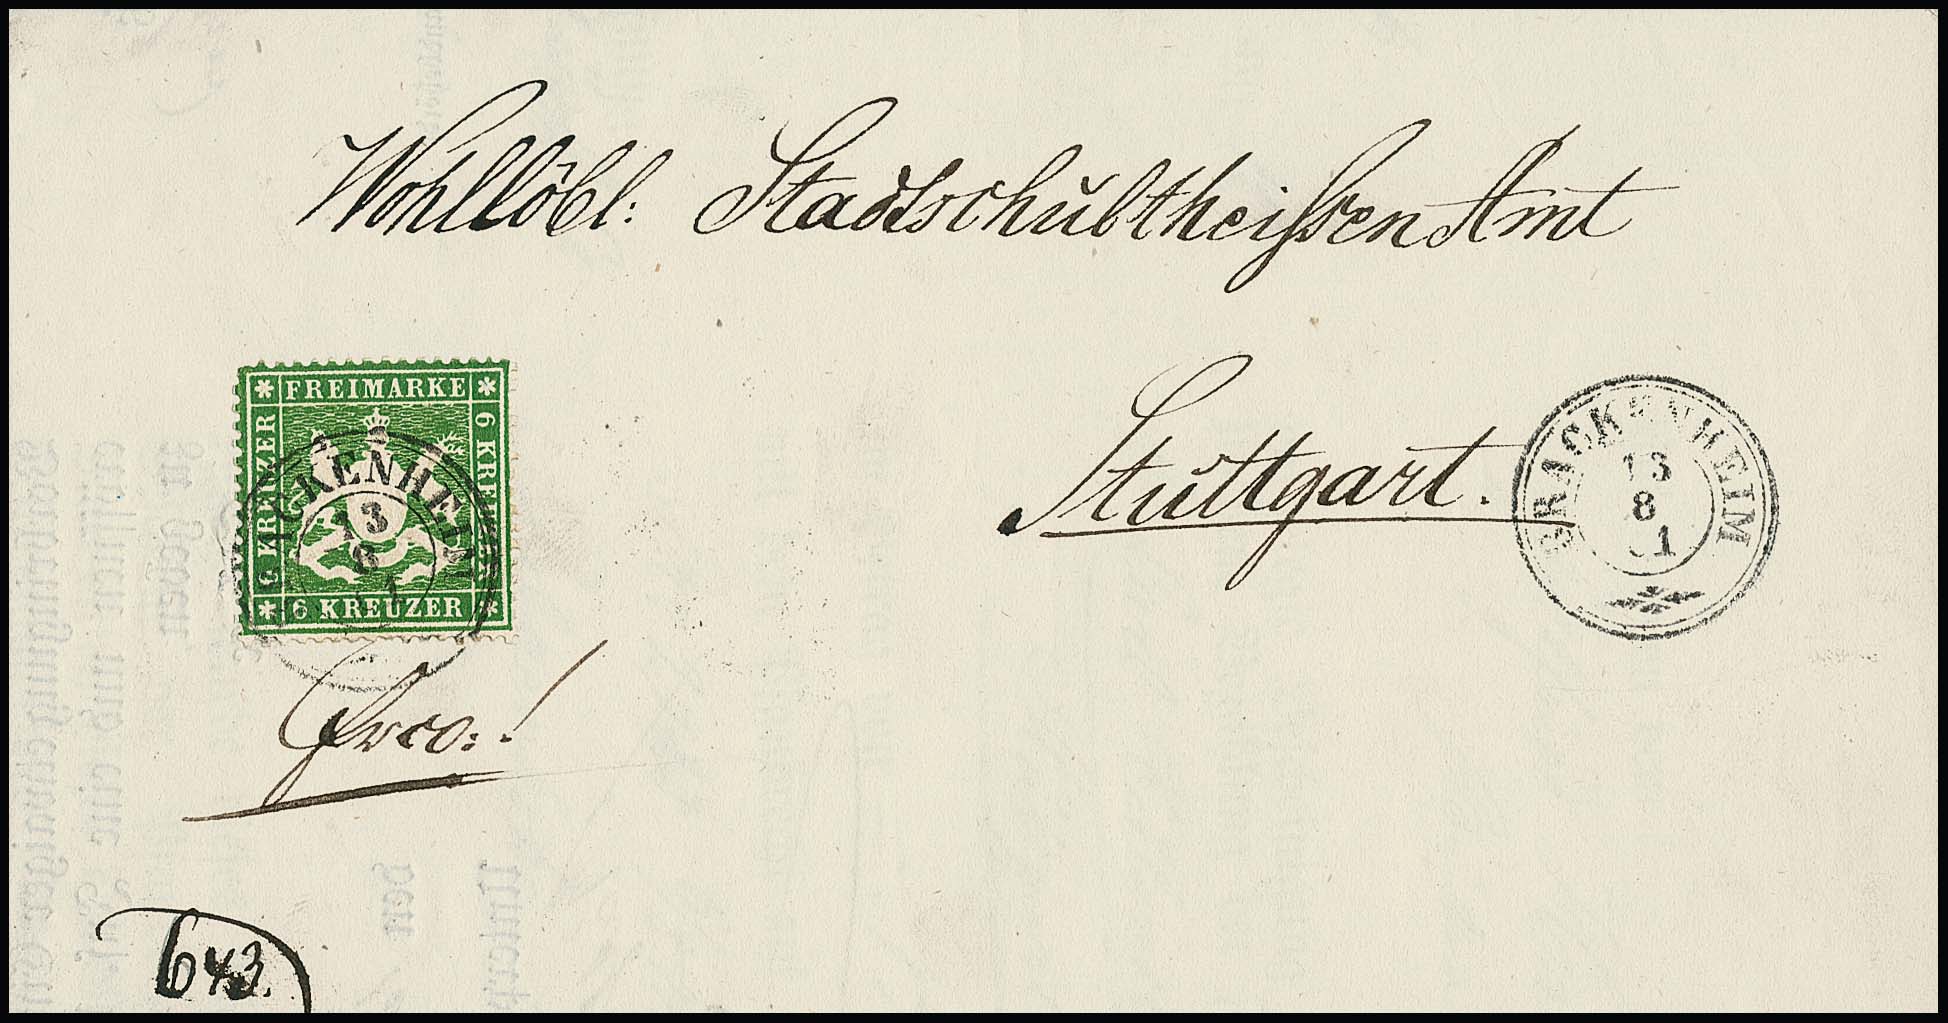 Wohllöbl: Stadtschultheissen Amt
Stuttgart.
BRACKENHEIM
13
8
61
FREIMARKE
6 KREUZER
6 KREUZER
6 KREUZER
CKENHEIM
13
8
frco:!
643.